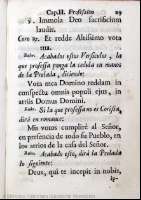 Cap. II. Professso 29
3. Immola Deo sacrificium
laudis.
Coro 2y. Et redde Altissimo vota
tua.
Rubr. Acabados estos Versiculos, la
que professa ponga la cedula en manos
de la Prelada, diciendo:
Vota mea Domino reddam in
conspectu omnis populi ejus, in
atriis Domus Domini.
Rubr. Si la que professa no es Corista,
dirá en romance:
Mis votos cumpliré al Señor,
en presencia de todo su Pueblo, en
los atrios de la Casa del Señor.
Rubr. Acabado esto, dirá la Prelada
lo seguiente:
Deus, qui te incepit in nobis,